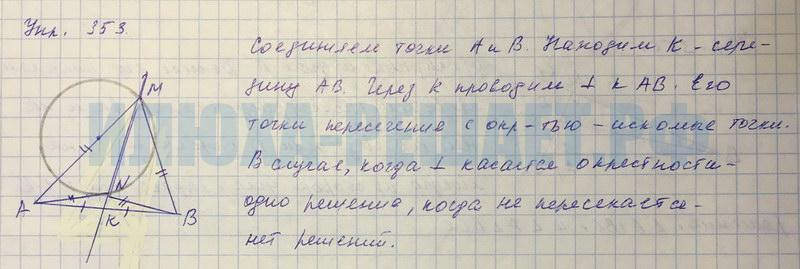 Упр. 353.
Соединяем точки А и В. Находим К - сере-
дину АВ. Через К проводим ⊥ к АВ. Его
точки пересечение с окр-тью - искомые точки.
В случае, когда ⊥ касается окрестности -
одно решение, когда не пересекается -
нет решений.
M
N
A
K
B
ИЛЮХА-РЕШАЕТ.РФ